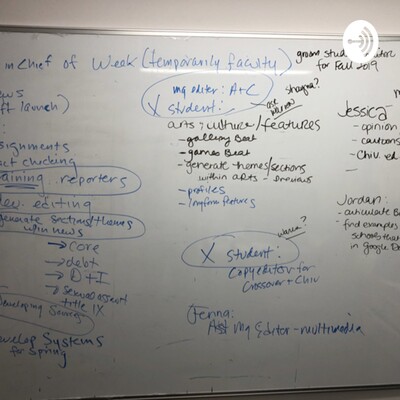 in Chief of Week (temporarily faculty)
groom stud
for Fall 2019
ews
ft launch)
mg editor: A+C
X student:
arts; culture/features
- gallery Beat
- games Beat
- generate themes/sections
within arts - previews
- profiles
- longform features
signments
act checking
aining reporters
editing
generate sections/themes
within news
→ core
→ debt
→ D+I
→ Sexual assault
title IX
Developing Sources
evelop Systems
for Spring
X student:
Copyeditor for
Crossover + Chiv
Jenna:
Asst Mg Editor - multimedia
Jessica
- opinion
- cartoons
- Chiv. ed
Jordan:
- articulate Be
- find examples
schools that
in Google Do